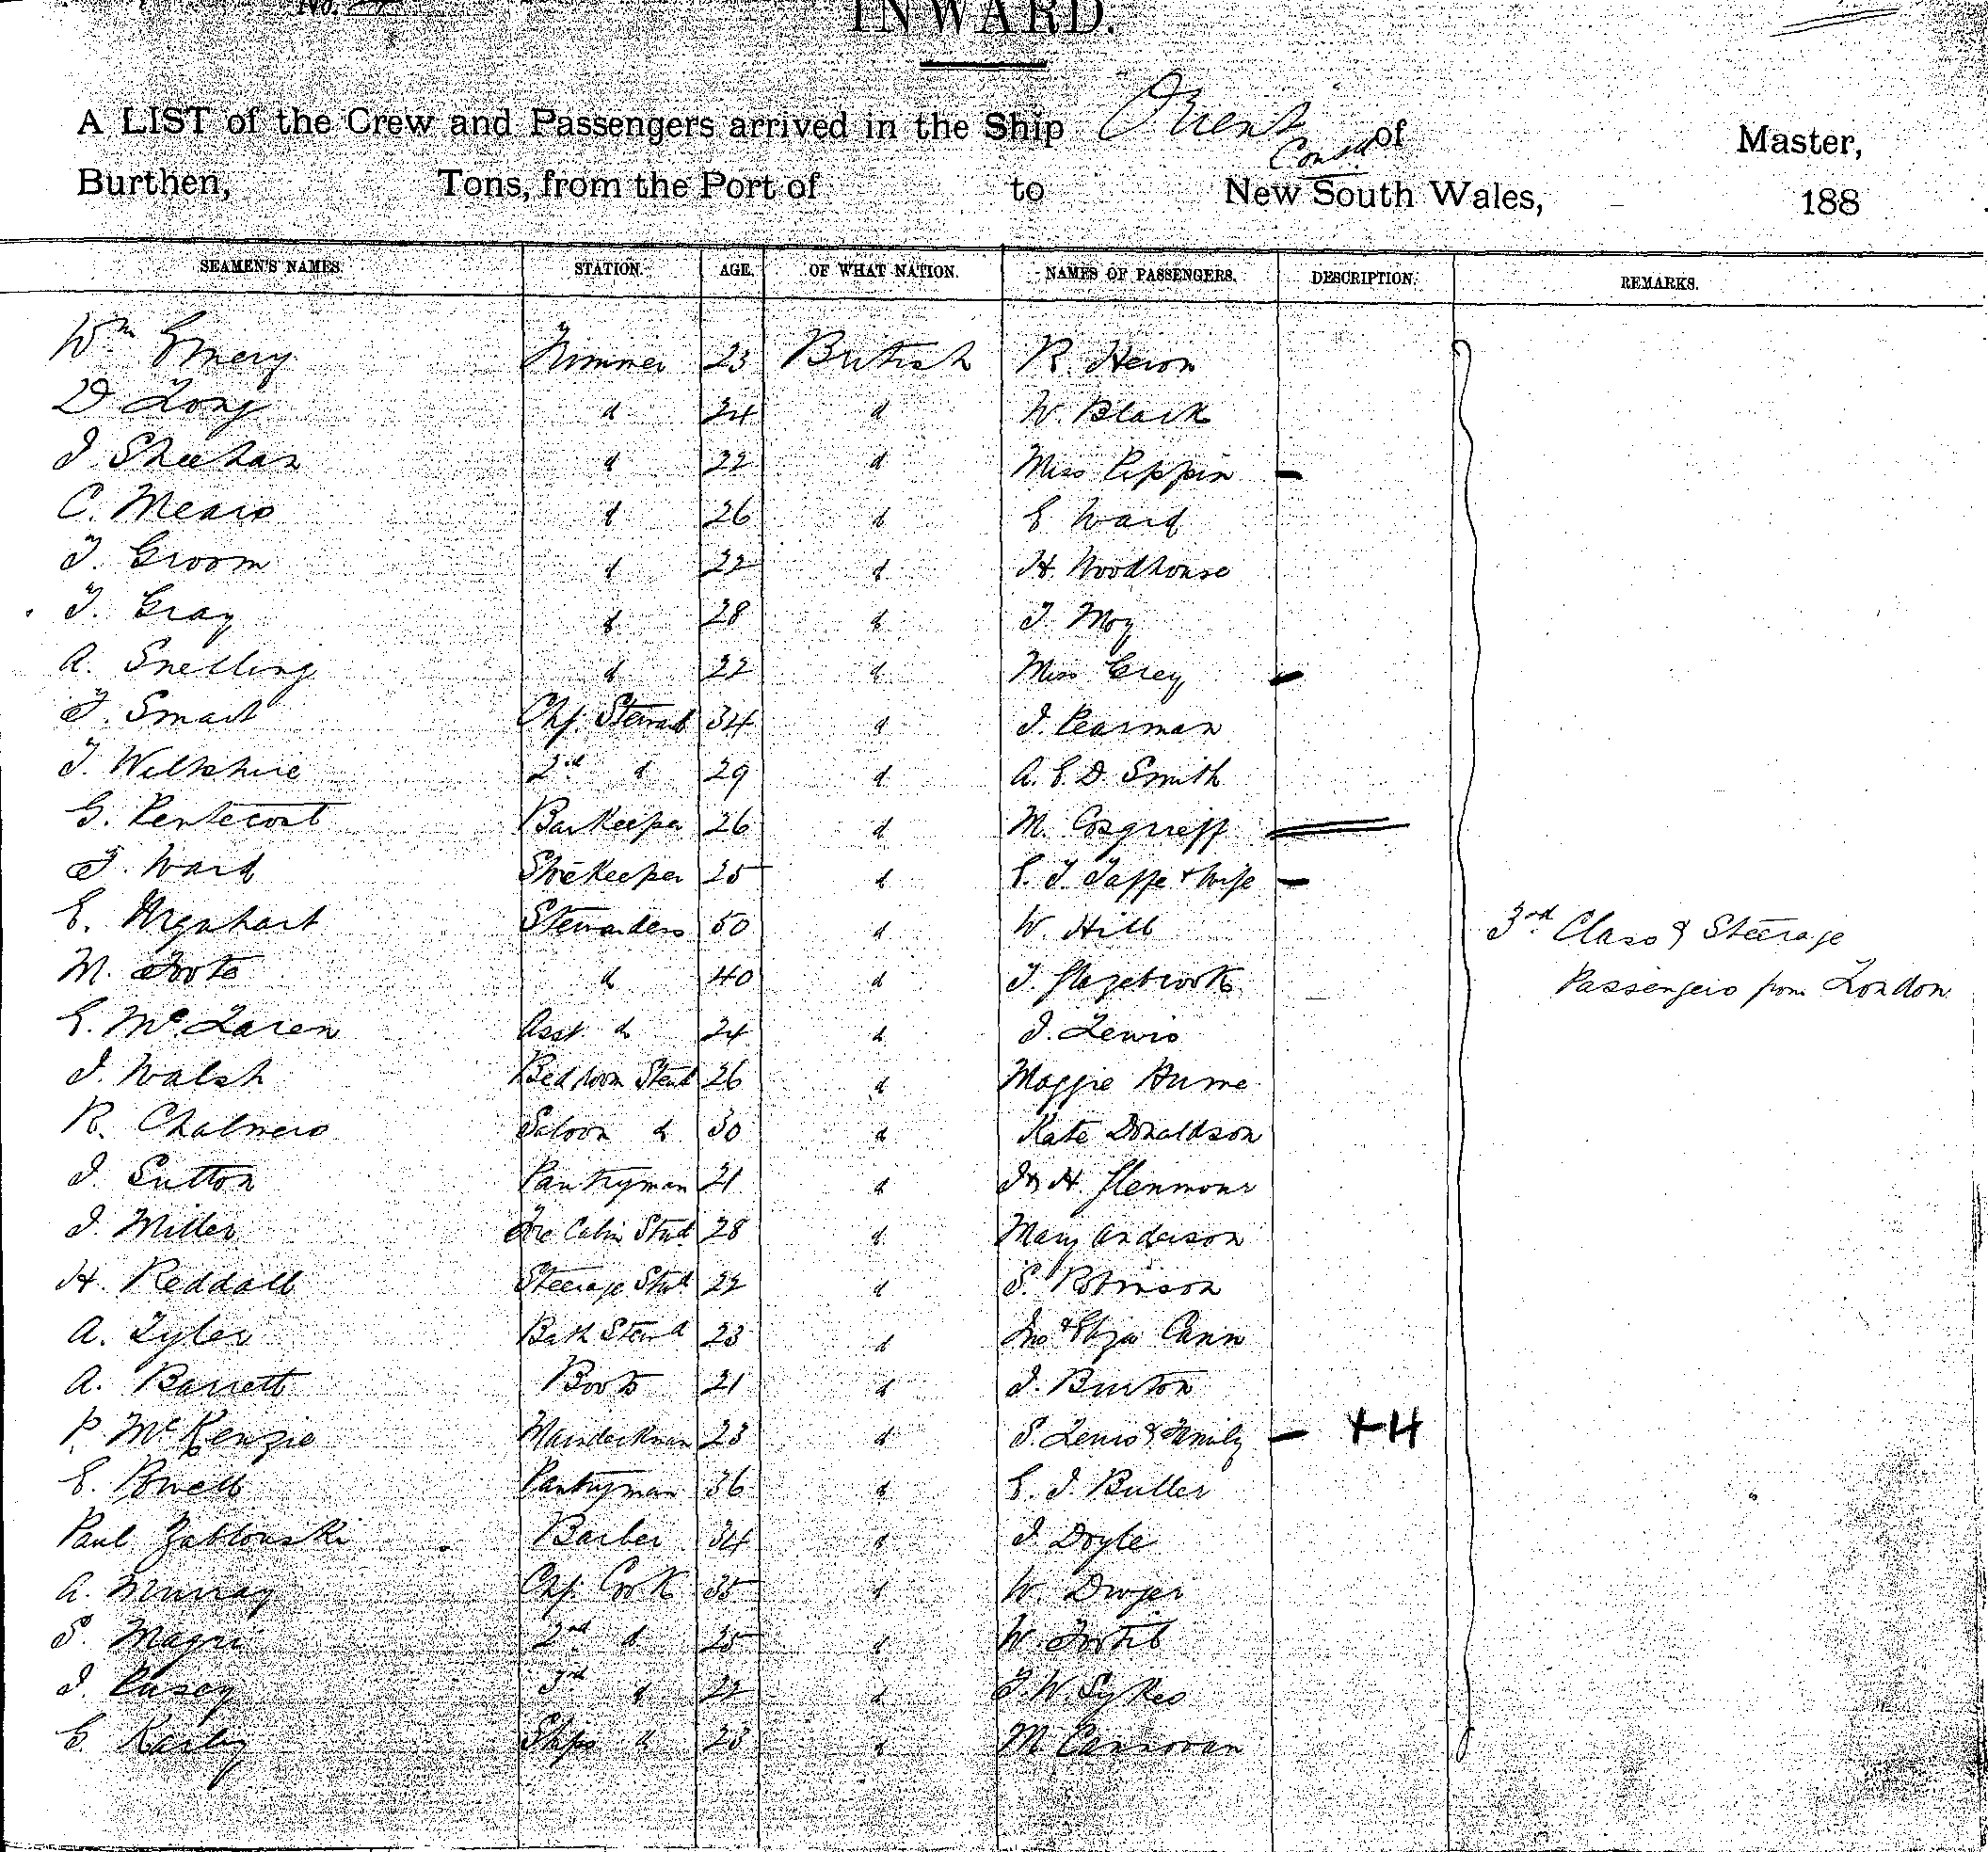 No.
INWARD.
A LIST of the Crew and Passengers arrived in the Ship Orient of Master,
Contd
Burthen, Tons, from the Port of to New South Wales, 188
SEAMEN'S NAMES. STATION. AGE. OF WHAT NATION. NAMES OF PASSENGERS. DESCRIPTION. REMARKS.
Wm Emery Trimmer 23 British R. Heron
D Long d 24 d W. Black
J Sheehan d 22 d Miss Pippin
C. Mears d 26 d E Ward
T. Groom d 22 d H. Woodhouse
T. Gray d 28 d T. Moy
A. Snelling d 22 d Miss Grey
F. Smart Chf. Steward 34 d J. Pearman
T. Wilkshire 2nd d 29 d A. E. D. Smith
G. Pentecost Barkeeper 26 d M. Cosgrieff
F. Ward Storekeeper 25 d E. T. Jaffe & Wife
E. Stewardess 50 d W Hill
3rd Class & Steerage
M. Foote d 40 d T. Glazebrook
Passengers from London
E. McLaren Asst. d 24 d J. Lewis
J. Walsh Bedroom Stewd 26 d Maggie Hume
R. Chalmers Saloon d 30 d Kate Donaldson
J. Sutton Pantryman 21 d H.
J. Miller Fre Cabin Stwd 28 d Mary Anderson
H. Reddall Steerage Stwd 22 d S. Robinson
A. Tyler Bath Stewd 23 d Jno & Eliza Cann
A. Barrett Boots 21 d J. Burton
P. McKenzie Maindeckman 23 d S. Lewis & Family +4
E. Powell Pantryman 36 d E. J. Butler
Paul Zablouski Barber 34 d J Doyle
A. Murray Chf. Cook 35 d W. Dwyer
S. Magri 2nd d 25 d W.
J. Pusey 3rd d 22 d F. W. Sykes
E. Ships d 23 d M Cannovan